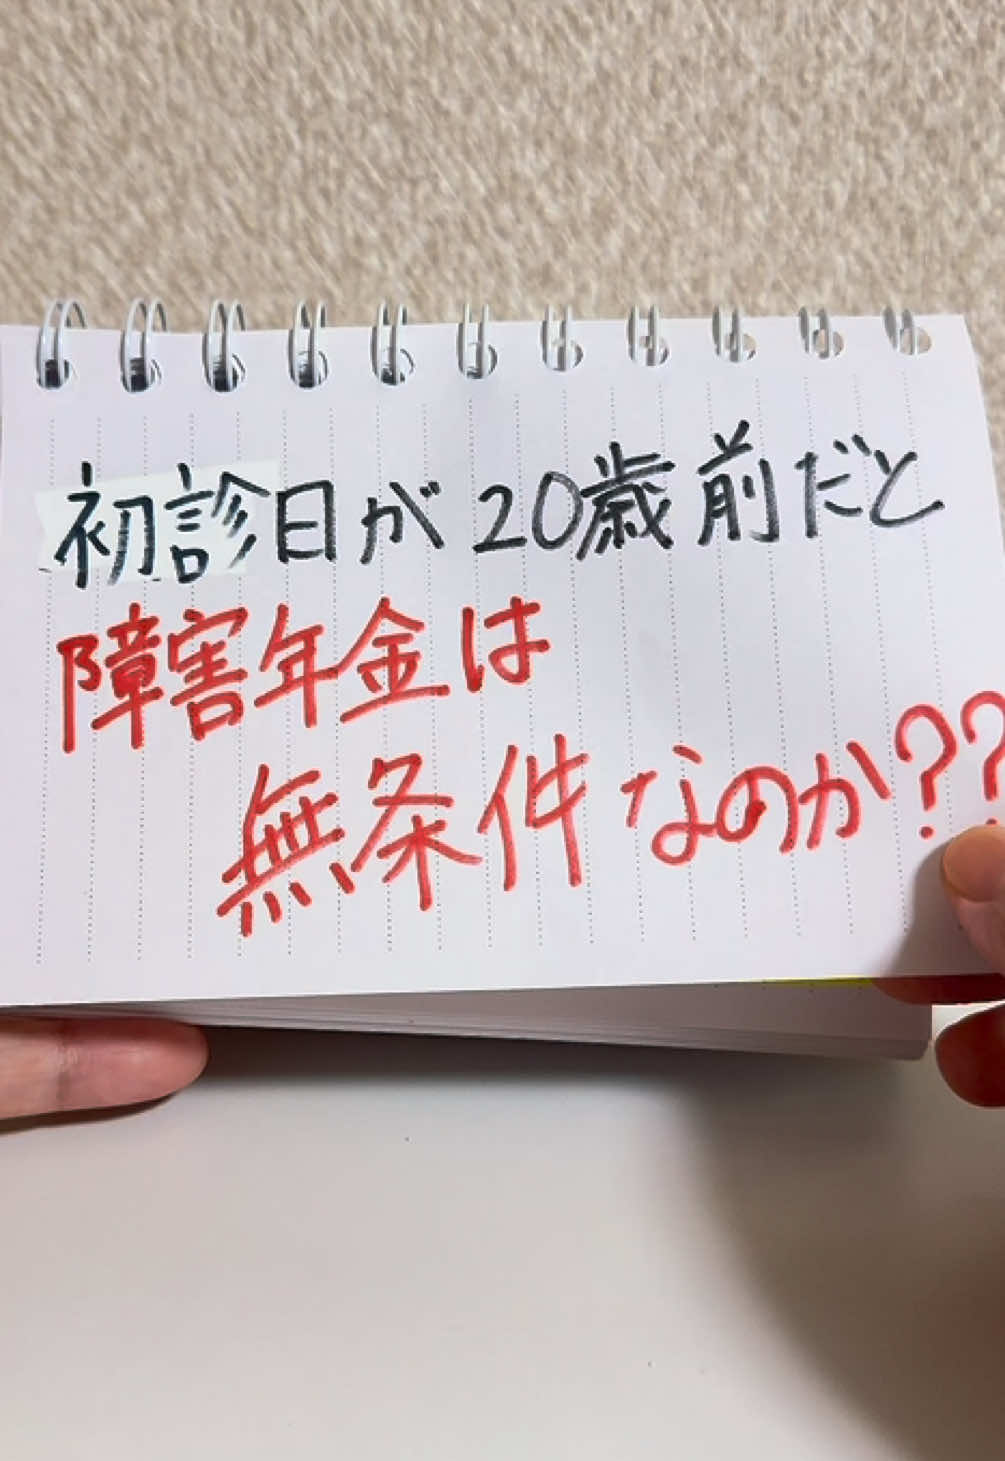 初診日が20歳前だと
障害年金は
無条件なのか??